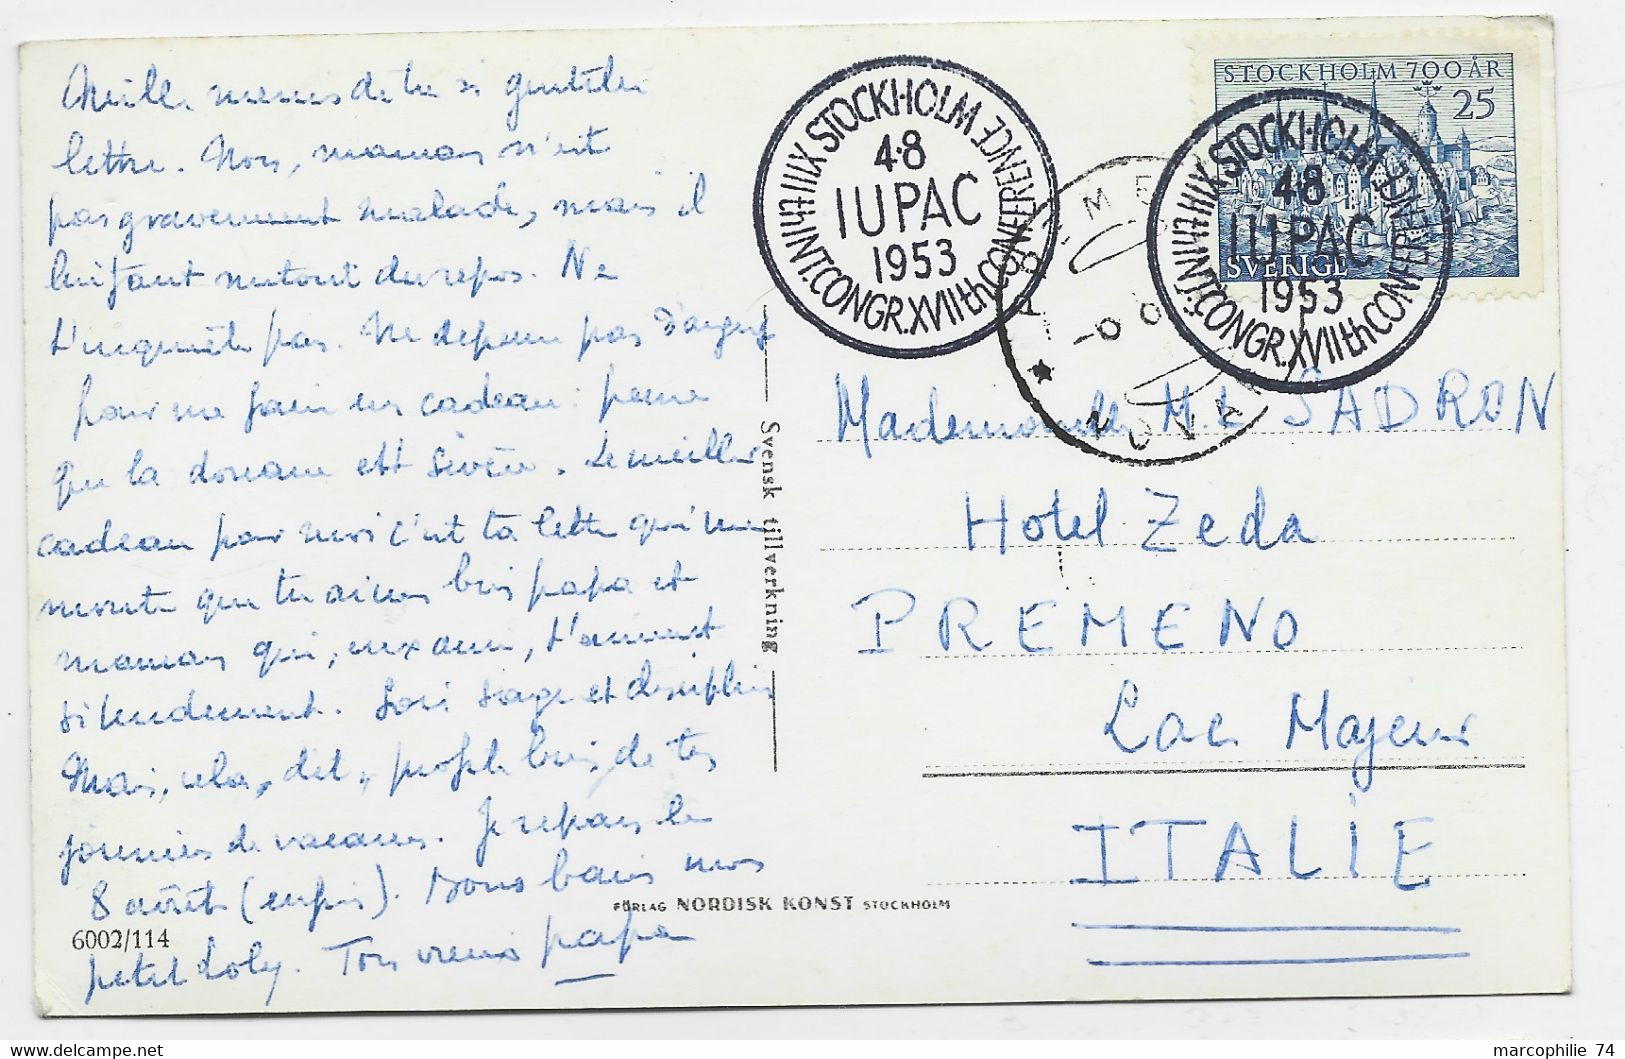 Mille mercis de ta si gentille
lettre. Non, maman n'est
pas gravement malade, mais il
lui faut surtout du repos. Ne
t'inquiète pas. Ne dépense pas d'argent
pour me faire un cadeau : pense
que la douane est sévère. Le meilleur
cadeau pour moi c'est ta lettre qui me
montre que tu aimes bien papa et
maman qui, eux aussi, t'aiment
si tendrement. Sois sage et disciplinée
Mais, cela, dit, profite bien de tes
journées de vacances. Je repars le
8 août (enfin). Bons baisers mon
petit Loly. Ton vieux papa
6002/114
Svensk tillverkning
FÖRLAG NORDISK KONST STOCKHOLM
XIIIth INT. CONGR. XVIIth CONFERENCE STOCKHOLM
4·8
IUPAC
1953
STOCKHOLM 700 ÅR
25
SVERIGE
XIIIth INT. CONGR. XVIIth CONFERENCE STOCKHOLM
4·8
IUPAC
1953
Mademoiselle M. L. SADRON
Hotel Zeda
PREMENO
Lac Majeur
ITALIE
marcophilie 74